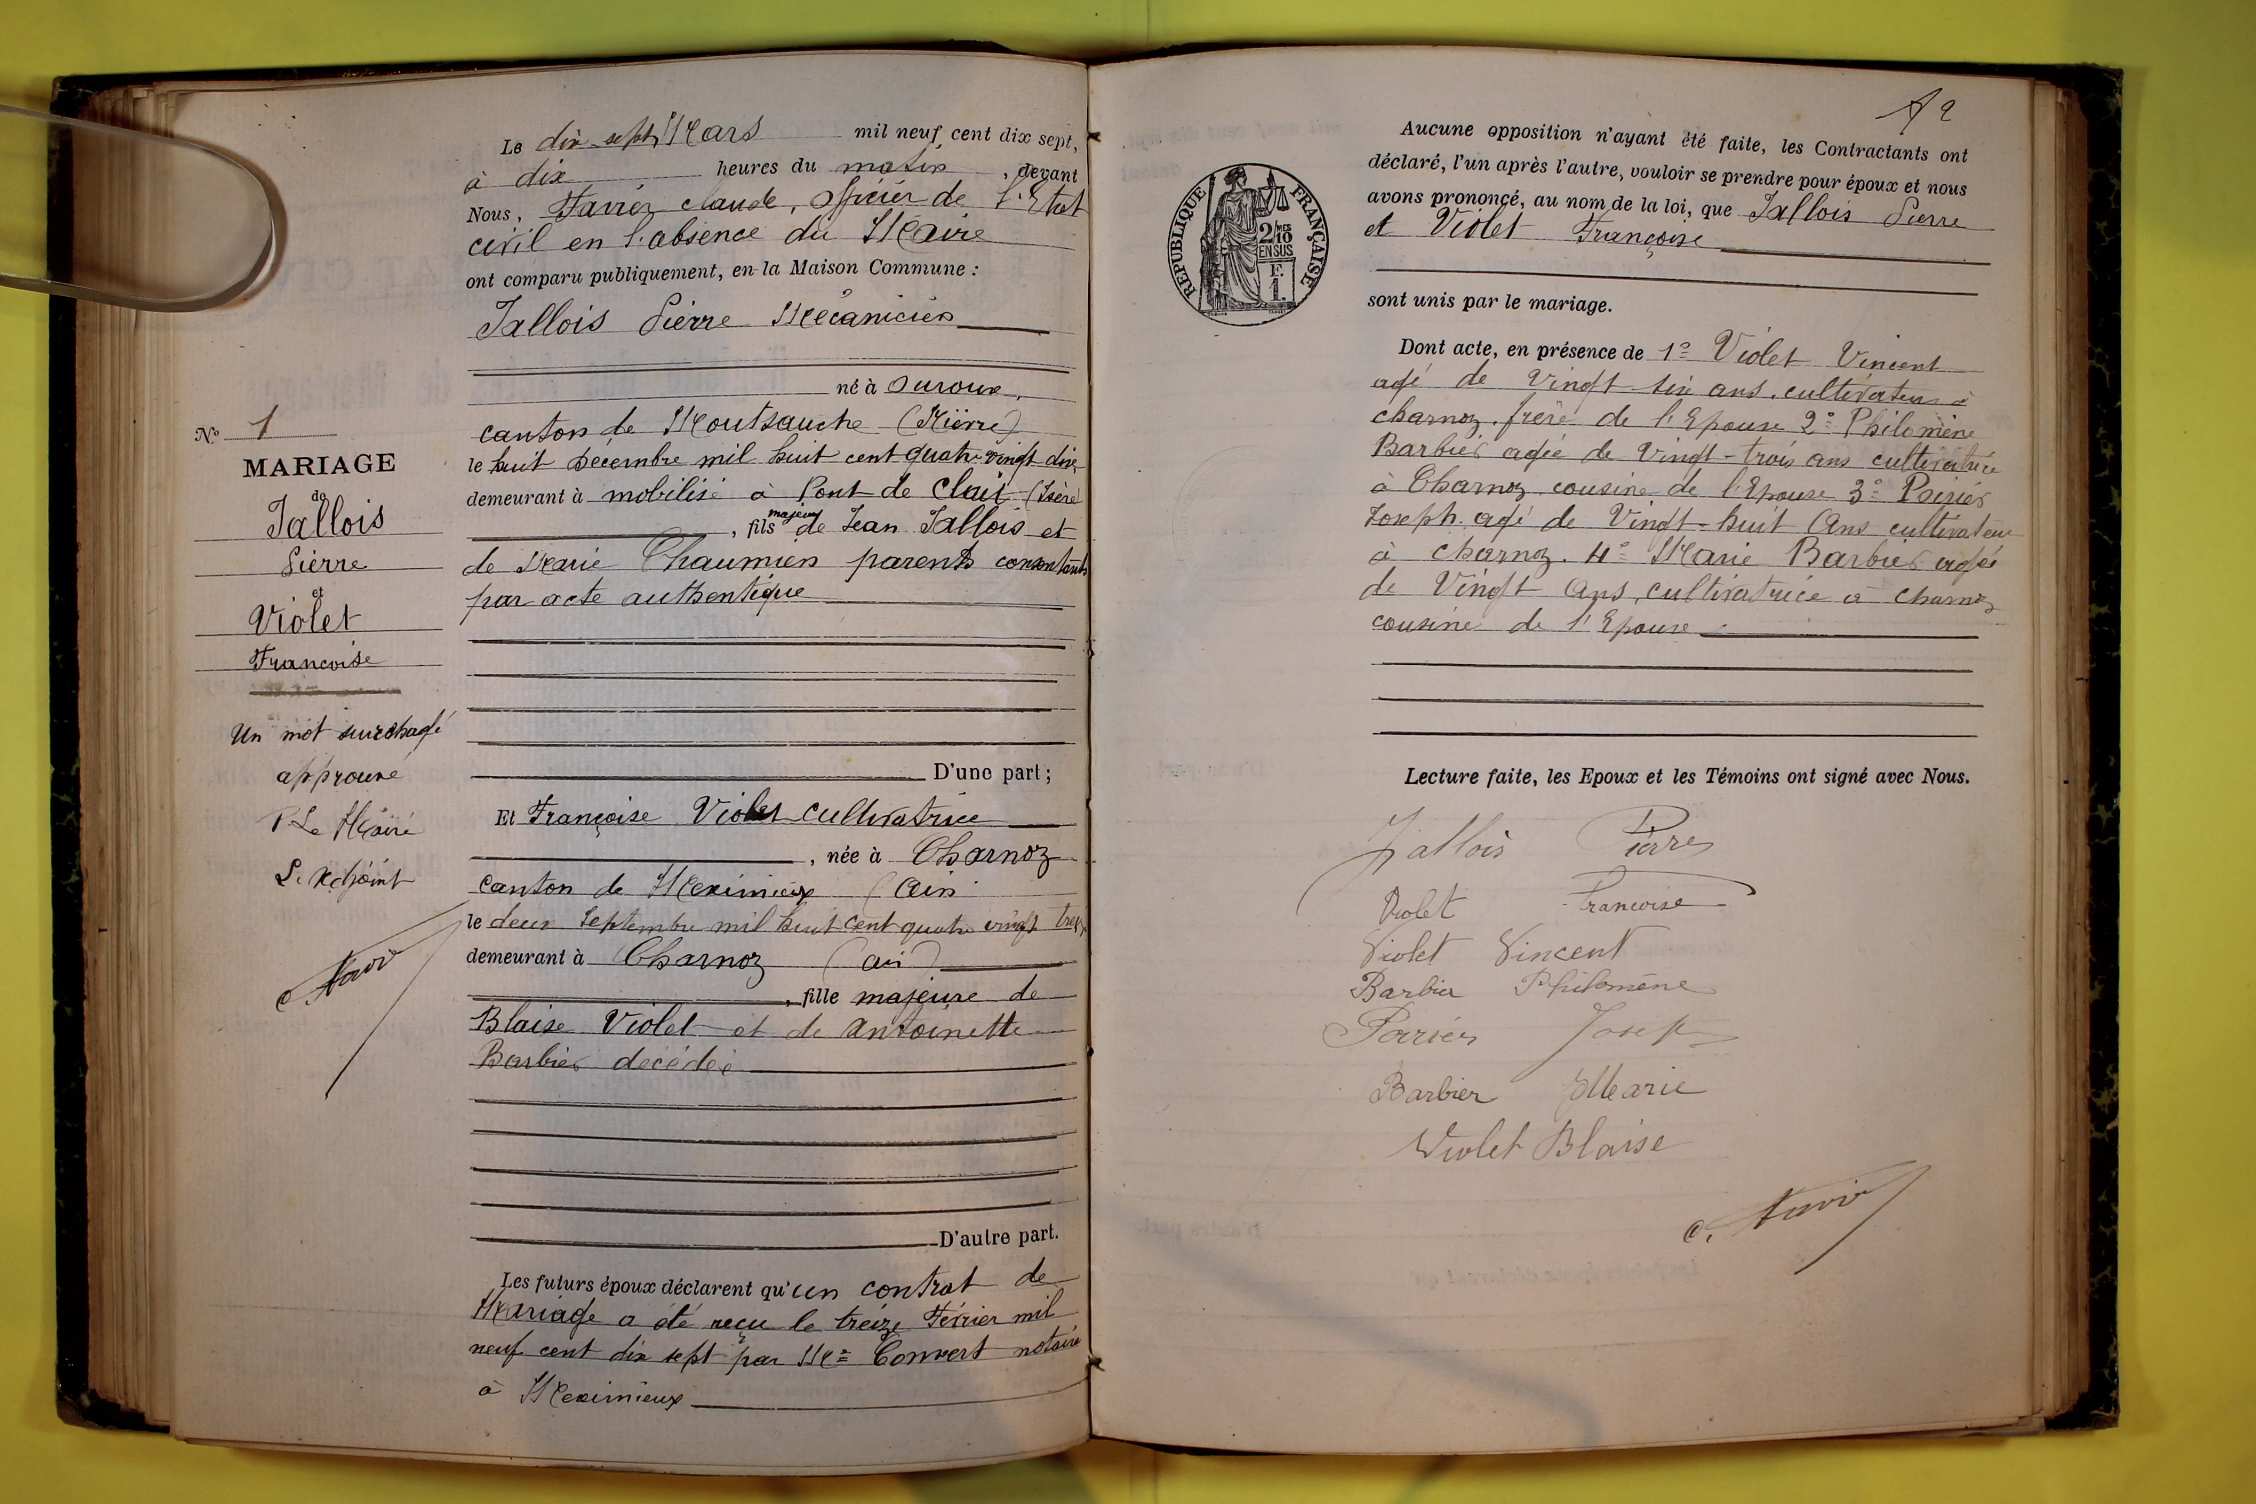 Le dix sept Mars mil neuf cent dix sept,
à dix heures du matin, devant
Nous, Favier claude, officier de l'Etat
civil en l'absence du Maire
ont comparu publiquement, en la Maison Commune :
Jallois Pierre Mécanicien
né à Ouroux,
canton de Montsauche (Nièvre)
le huit Décembre mil huit cent quatre vingt dix
demeurant à mobilisé à Pont de Claix (Isère)
, fils majeur de Jean Jallois et
de Marie Chaumien parents consentants
par acte authentique
D'une part ;
Et Françoise Violet cultivatrice
, née à Charnoz
canton de Meximieux (Ain
le deux Septembre mil huit cent quatre vingt treize
demeurant à Charnoz (ain)
, fille majeure de
Blaise Violet et de Antoinette
Barbier décédée
D'autre part.
Les futurs époux déclarent qu'un contrat de
Mariage a été reçu le treize Février mil
neuf cent dix sept par Me Convert notaire
à Meximieux
No 1
MARIAGE
de
Jallois
Pierre
et
Violet
Francoise
Un mot surchagé
approuvé
P. Le Maire
L. Adjoint
C. Favier
A 2
Aucune opposition n'ayant été faite, les Contractants ont
déclaré, l'un après l'autre, vouloir se prendre pour époux et nous
avons prononcé, au nom de la loi, que Jallois Pierre
et Violet Françoise
sont unis par le mariage.
REPUBLIQUE FRANÇAISE
2/MES
10
EN SUS
F.
1.
Dont acte, en présence de 1° Violet Vincent
agé de Vingt six ans. cultivateur à
charnoz. frère de l'Epouse 2° Philomène
Barbier agée de Vingt-trois ans cultivatrice
à Charnoz cousine de l'Epouse 3° Poirier
Joseph agé de Vingt-huit Ans cultivateur
à charnoz. 4° Marie Barbier agée
de Vingt Ans, cultivatrice à charnoz
cousine de l'Epouse
Lecture faite, les Epoux et les Témoins ont signé avec Nous.
Jallois Pierre
Violet Francoise
Violet Vincent
Barbier Philomène
Poirier Joseph
Barbier Marie
Violet Blaise
C. Favier